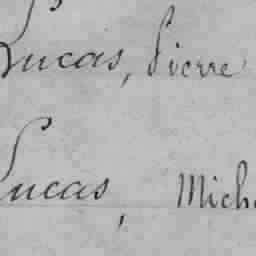 Lucas, Pierre
Lucas, Mich